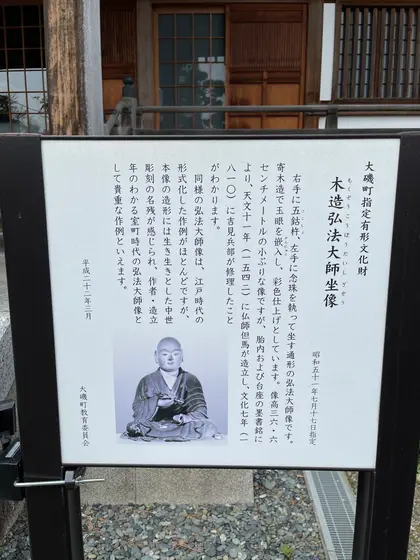 大磯町指定有形文化財
もくぞうこうぼうだいしざぞう
木造弘法大師坐像
昭和五十一年七月十七日指定
右手に五鈷杵、左手に念珠を執って坐す通形の弘法大師像です。
寄木造で玉眼を嵌入し、彩色仕上げとしています。像高三六・六
センチメートルの小ぶりな像ですが、胎内および台座の墨書銘に
より、天文十一年(一五四二)に仏師但馬が造立し、文化七年(一
八一〇)に吉見兵部が修理したこと
がわかります。
同様の弘法大師像は、江戸時代の
形式化した作例がほとんどですが、
本像の造形には生き生きとした中世
彫刻の名残が感じられ、作者・造立
年のわかる室町時代の弘法大師像と
して貴重な作例といえます。
平成二十二年三月
大磯町教育委員会